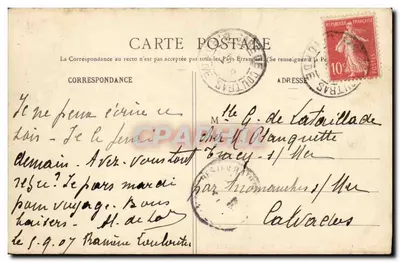 CARTE POSTALE
La Correspondance au recto n'est pas acceptée par tous les Pays Étrangers (Se renseigner à la Poste)
CORRESPONDANCE
ADRESSE
Je ne peux écrire ce
soir - Je le ferai
demain. Avez-vous tout
reçu? Je pars mardi
pour voyage. Bons
baisers. M. de Lat
le 5.9.07
M
lle G. de Lataillade
Tracy s/Mer
par Arromanches s/Mer
Calvados
REPUBLIQUE FRANÇAISE
10
CPARAMA